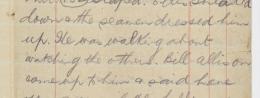 down & the seamen dressed him
up. He was walking about
watching the others. Bill Allison
came up to him & said here